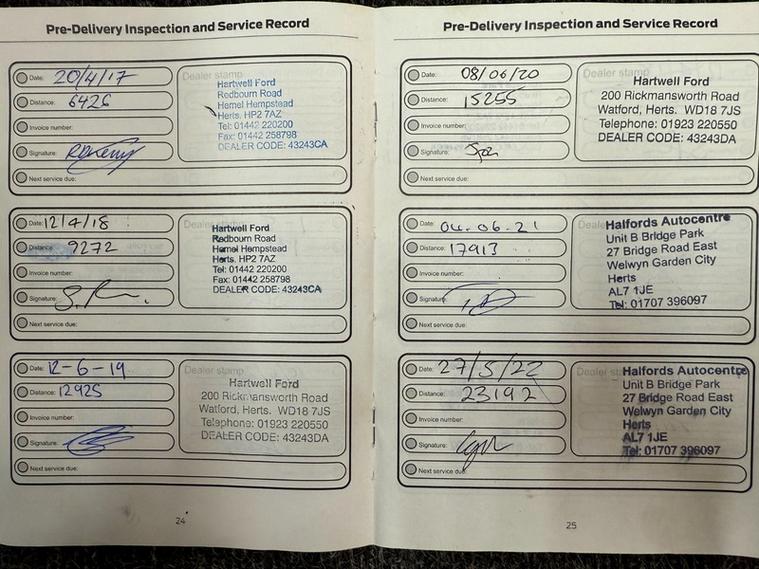 Pre-Delivery Inspection and Service Record
Date: 20/4/17
Distance: 6426
Invoice number:
Signature:
Next service due:
Dealer stamp
Hartwell Ford
Redbourn Road
Hemel Hempstead
Herts. HP2 7AZ
Tel: 01442 220200
Fax: 01442 258798
DEALER CODE: 43243CA
Date: 12/4/18
Distance: 9272
Invoice number:
Signature:
Next service due:
Dealer stamp
Hartwell Ford
Redbourn Road
Hemel Hempstead
Herts. HP2 7AZ
Tel: 01442 220200
Fax: 01442 258798
DEALER CODE: 43243CA
Date: 12-6-19
Distance: 12925
Invoice number:
Signature:
Next service due:
Dealer stamp
Hartwell Ford
200 Rickmansworth Road
Watford, Herts. WD18 7JS
Telephone: 01923 220550
DEALER CODE: 43243DA
24
Pre-Delivery Inspection and Service Record
Date: 08/06/20
Distance: 15255
Invoice number:
Signature:
Next service due:
Dealer stamp
Hartwell Ford
200 Rickmansworth Road
Watford, Herts. WD18 7JS
Telephone: 01923 220550
DEALER CODE: 43243DA
Date: 04.06.21
Distance: 17913
Invoice number:
Signature:
Next service due:
Dealer
Halfords Autocentre
Unit B Bridge Park
27 Bridge Road East
Welwyn Garden City
Herts
AL7 1JE
Tel: 01707 396097
Date: 27/5/22
Distance: 23192
Invoice number:
Signature:
Next service due:
Dealer stamp
Halfords Autocentre
Unit B Bridge Park
27 Bridge Road East
Welwyn Garden City
Herts
AL7 1JE
Tel: 01707 396097
25